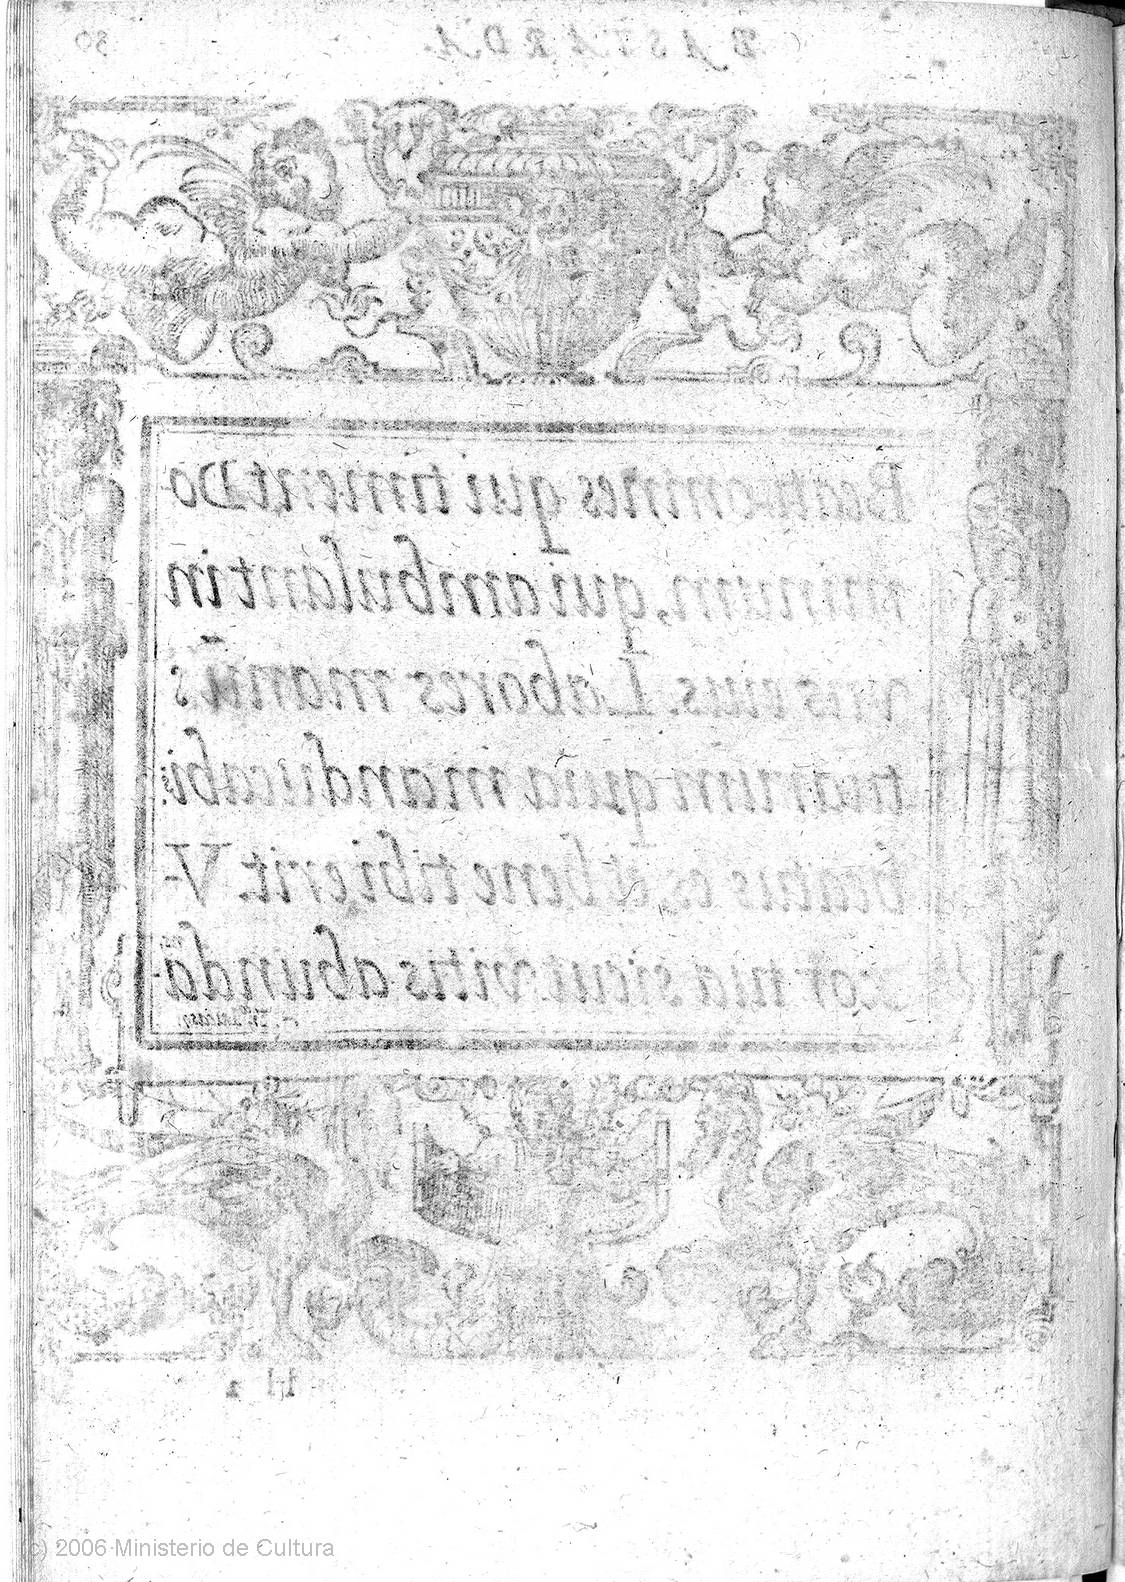 BASTARDA. 80
Beati omnes qui timent Do
minum, qui ambulant in
viis eius. Labores manuũ
tuarum quia manducabis:
beatus es, et bene tibi erit. V-
xor tua sicut vitis abundã-
Frãᶜᵒ Lucas
2006 Ministerio de Cultura